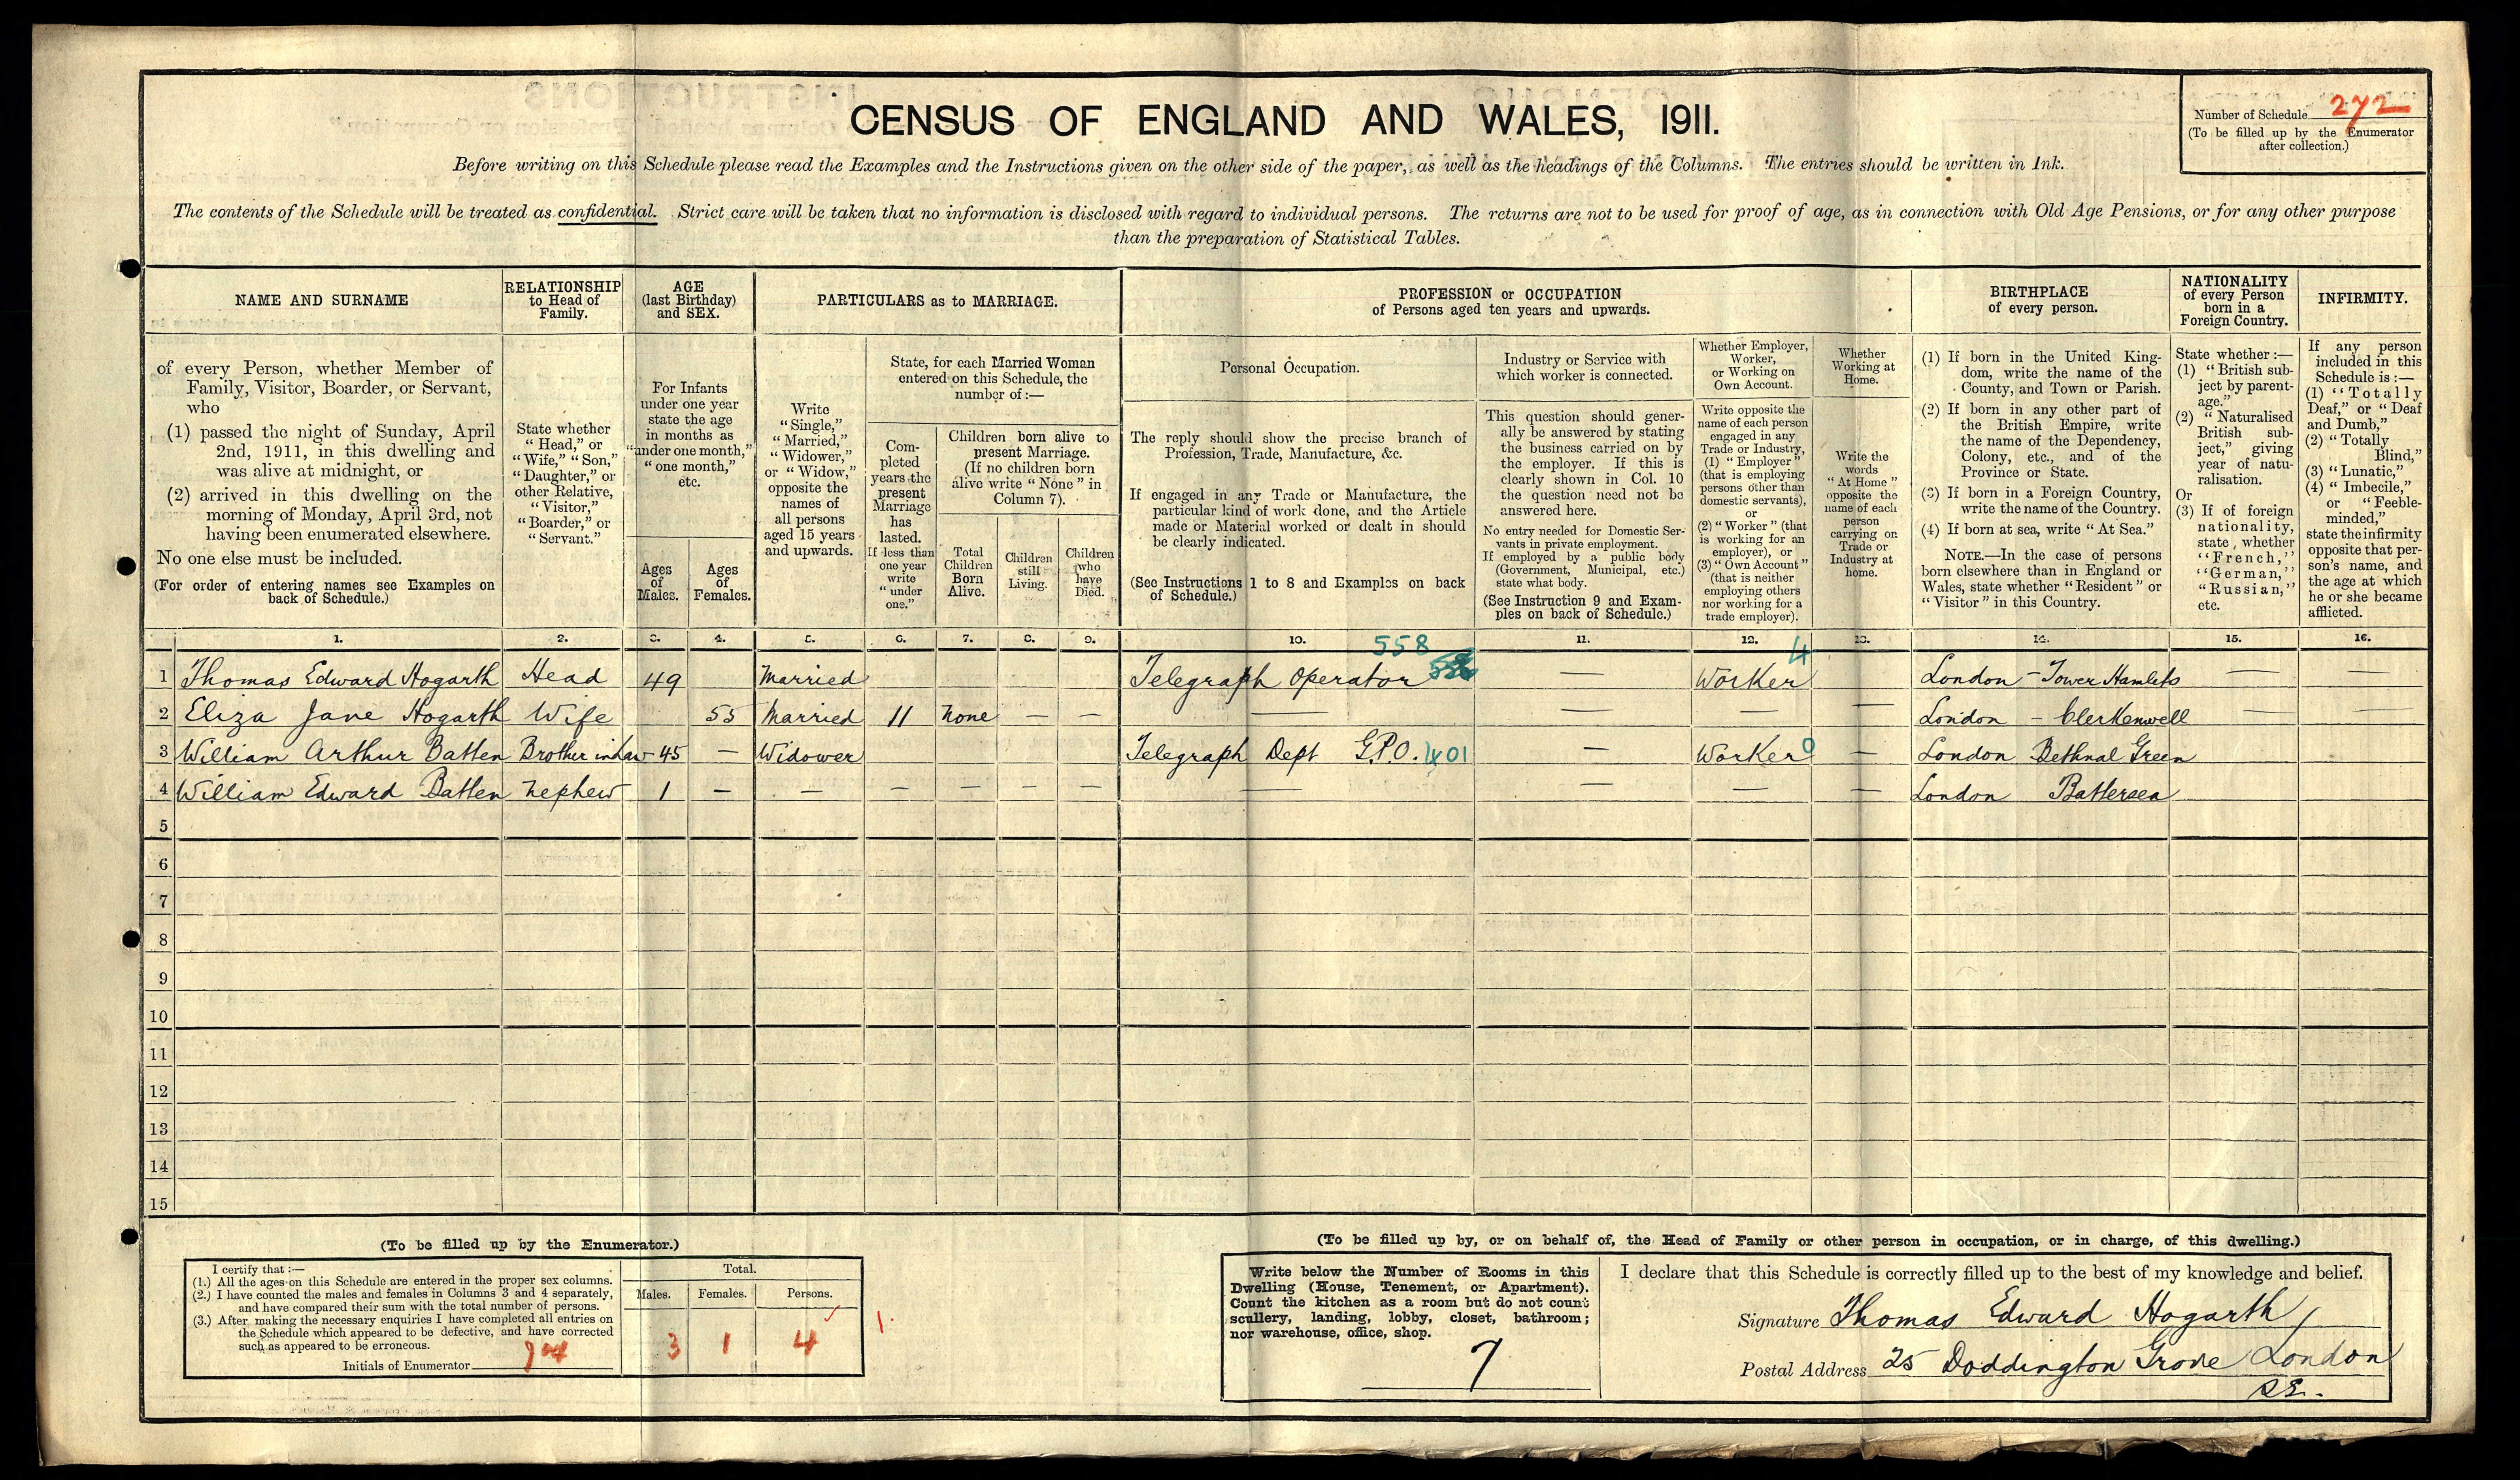 CENSUS OF ENGLAND AND WALES, 1911.
Number of Schedule 272
(To be filled up by the Enumerator
after collection.)
Before writing on this Schedule please read the Examples and the Instructions given on the other side of the paper, as well as the headings of the Columns. The entries should be written in Ink.
The contents of the Schedule will be treated as confidential. Strict care will be taken that no information is disclosed with regard to individual persons. The returns are not to be used for proof of age, as in connection with Old Age Pensions, or for any other purpose
than the preparation of Statistical Tables.
NAME AND SURNAME
of every Person, whether Member of
Family, Visitor, Boarder, or Servant,
who
(1) passed the night of Sunday, April
2nd, 1911, in this dwelling and
was alive at midnight, or
(2) arrived in this dwelling on the
morning of Monday, April 3rd, not
having been enumerated elsewhere.
No one else must be included.
(For order of entering names see Examples on
back of Schedule.)
RELATIONSHIP
to Head of
Family.
State whether
"Head," or
"Wife," "Son,"
"Daughter," or
other Relative,
"Visitor,"
"Boarder," or
"Servant."
AGE
(last Birthday)
and SEX.
For Infants
under one year
state the age
in months as
"under one month,"
"one month,"
etc.
Ages
of
Males.
Ages
of
Females.
PARTICULARS as to MARRIAGE.
Write
"Single,"
"Married,"
"Widower,"
or "Widow,"
opposite the
names of
all persons
aged 15 years
and upwards.
State, for each Married Woman
entered on this Schedule, the
number of:—
Com-
pleted
years the
present
Marriage
has
lasted.
If less than
one year
write
"under
one."
Children born alive to
present Marriage.
(If no children born
alive write "None" in
Column 7).
Total
Children
Born
Alive.
Children
still
Living.
Children
who
have
Died.
PROFESSION or OCCUPATION
of Persons aged ten years and upwards.
Personal Occupation.
The reply should show the precise branch of
Profession, Trade, Manufacture, &c.
If engaged in any Trade or Manufacture, the
particular kind of work done, and the Article
made or Material worked or dealt in should
be clearly indicated.
(See Instructions 1 to 8 and Examples on back
of Schedule.)
Industry or Service with
which worker is connected.
This question should gener-
ally be answered by stating
the business carried on by
the employer. If this is
clearly shown in Col. 10
the question need not be
answered here.
No entry needed for Domestic Ser-
vants in private employment.
If employed by a public body
(Government, Municipal, etc.)
state what body.
(See Instruction 9 and Exam-
ples on back of Schedule.)
Whether Employer,
Worker,
or Working on
Own Account.
Write opposite the
name of each person
engaged in any
Trade or Industry,
(1) "Employer"
(that is employing
persons other than
domestic servants),
or
(2) "Worker" (that
is working for an
employer), or
(3) "Own Account"
(that is neither
employing others
nor working for a
trade employer).
Whether
Working at
Home.
Write the
words
"At Home"
opposite the
name of each
person
carrying on
Trade or
Industry at
home.
BIRTHPLACE
of every person.
(1) If born in the United King-
dom, write the name of the
County, and Town or Parish.
(2) If born in any other part of
the British Empire, write
the name of the Dependency,
Colony, etc., and of the
Province or State.
(3) If born in a Foreign Country,
write the name of the Country.
(4) If born at sea, write "At Sea."
NOTE.—In the case of persons
born elsewhere than in England or
Wales, state whether "Resident" or
"Visitor" in this Country.
NATIONALITY
of every Person
born in a
Foreign Country.
State whether:—
(1) "British sub-
ject by parent-
age."
(2) "Naturalised
British sub-
ject," giving
year of natu-
ralisation.
Or
(3) If of foreign
nationality,
state whether
"French,"
"German,"
"Russian,"
etc.
INFIRMITY.
If any person
included in this
Schedule is:—
(1) "Totally
Deaf," or "Deaf
and Dumb,"
(2) "Totally
Blind,"
(3) "Lunatic,"
(4) "Imbecile,"
or "Feeble-
minded,"
state the infirmity
opposite that per-
son's name, and
the age at which
he or she became
afflicted.
1. 2. 3. 4. 5. 6. 7. 8. 9. 10. 11. 12. 13. 14. 15. 16.
558 4
1 Thomas Edward Hogarth Head 49 Married Telegraph Operator — Worker London - Tower Hamlets — —
2 Eliza Jane Hogarth Wife 53 Married 11 None — — — — — — London - Clerkenwell — —
3 William Arthur Batten Brother in Law 45 — Widower Telegraph Dept G.P.O. 401 — Worker 0 — London Bethnal Green
4 William Edward Batten Nephew 1 — — — — — — — — — — London Battersea
5
6
7
8
9
10
11
12
13
14
15
(To be filled up by the Enumerator.)
I certify that:—
(1.) All the ages on this Schedule are entered in the proper sex columns.
(2.) I have counted the males and females in Columns 3 and 4 separately,
and have compared their sum with the total number of persons.
(3.) After making the necessary enquiries I have completed all entries on
the Schedule which appeared to be defective, and have corrected
such as appeared to be erroneous.
Initials of Enumerator
Total.
Males. Females. Persons.
3 1 4 1.
(To be filled up by, or on behalf of, the Head of Family or other person in occupation, or in charge, of this dwelling.)
Write below the Number of Rooms in this
Dwelling (House, Tenement, or Apartment).
Count the kitchen as a room but do not count
scullery, landing, lobby, closet, bathroom;
nor warehouse, office, shop.
7
I declare that this Schedule is correctly filled up to the best of my knowledge and belief.
Signature Thomas Edward Hogarth
Postal Address 25 Doddington Grove London
S.E.